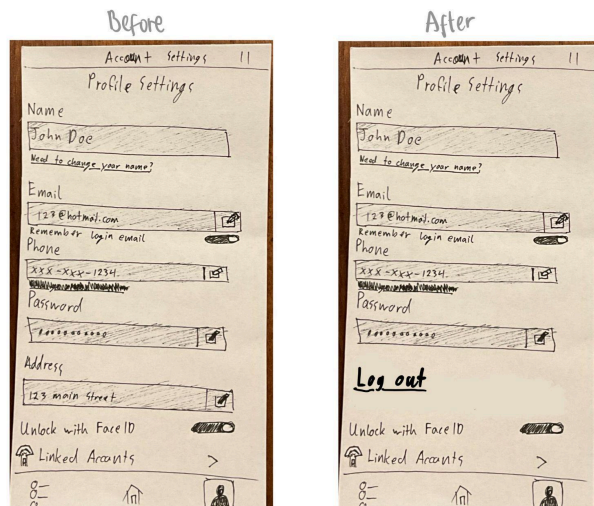 Before
Account Settings
Profile Settings
Name
John Doe
Need to change your name?
Email
123@hotmail.com
Remember login email
Phone
xxx-xxx-1234
Password
Address
123 main street
Unlock with Face ID
Linked Accounts >
After
Account Settings
Profile Settings
Name
John Doe
Need to change your name?
Email
123@hotmail.com
Remember login email
Phone
xxx-xxx-1234
Password
Log out
Unlock with Face ID
Linked Accounts >